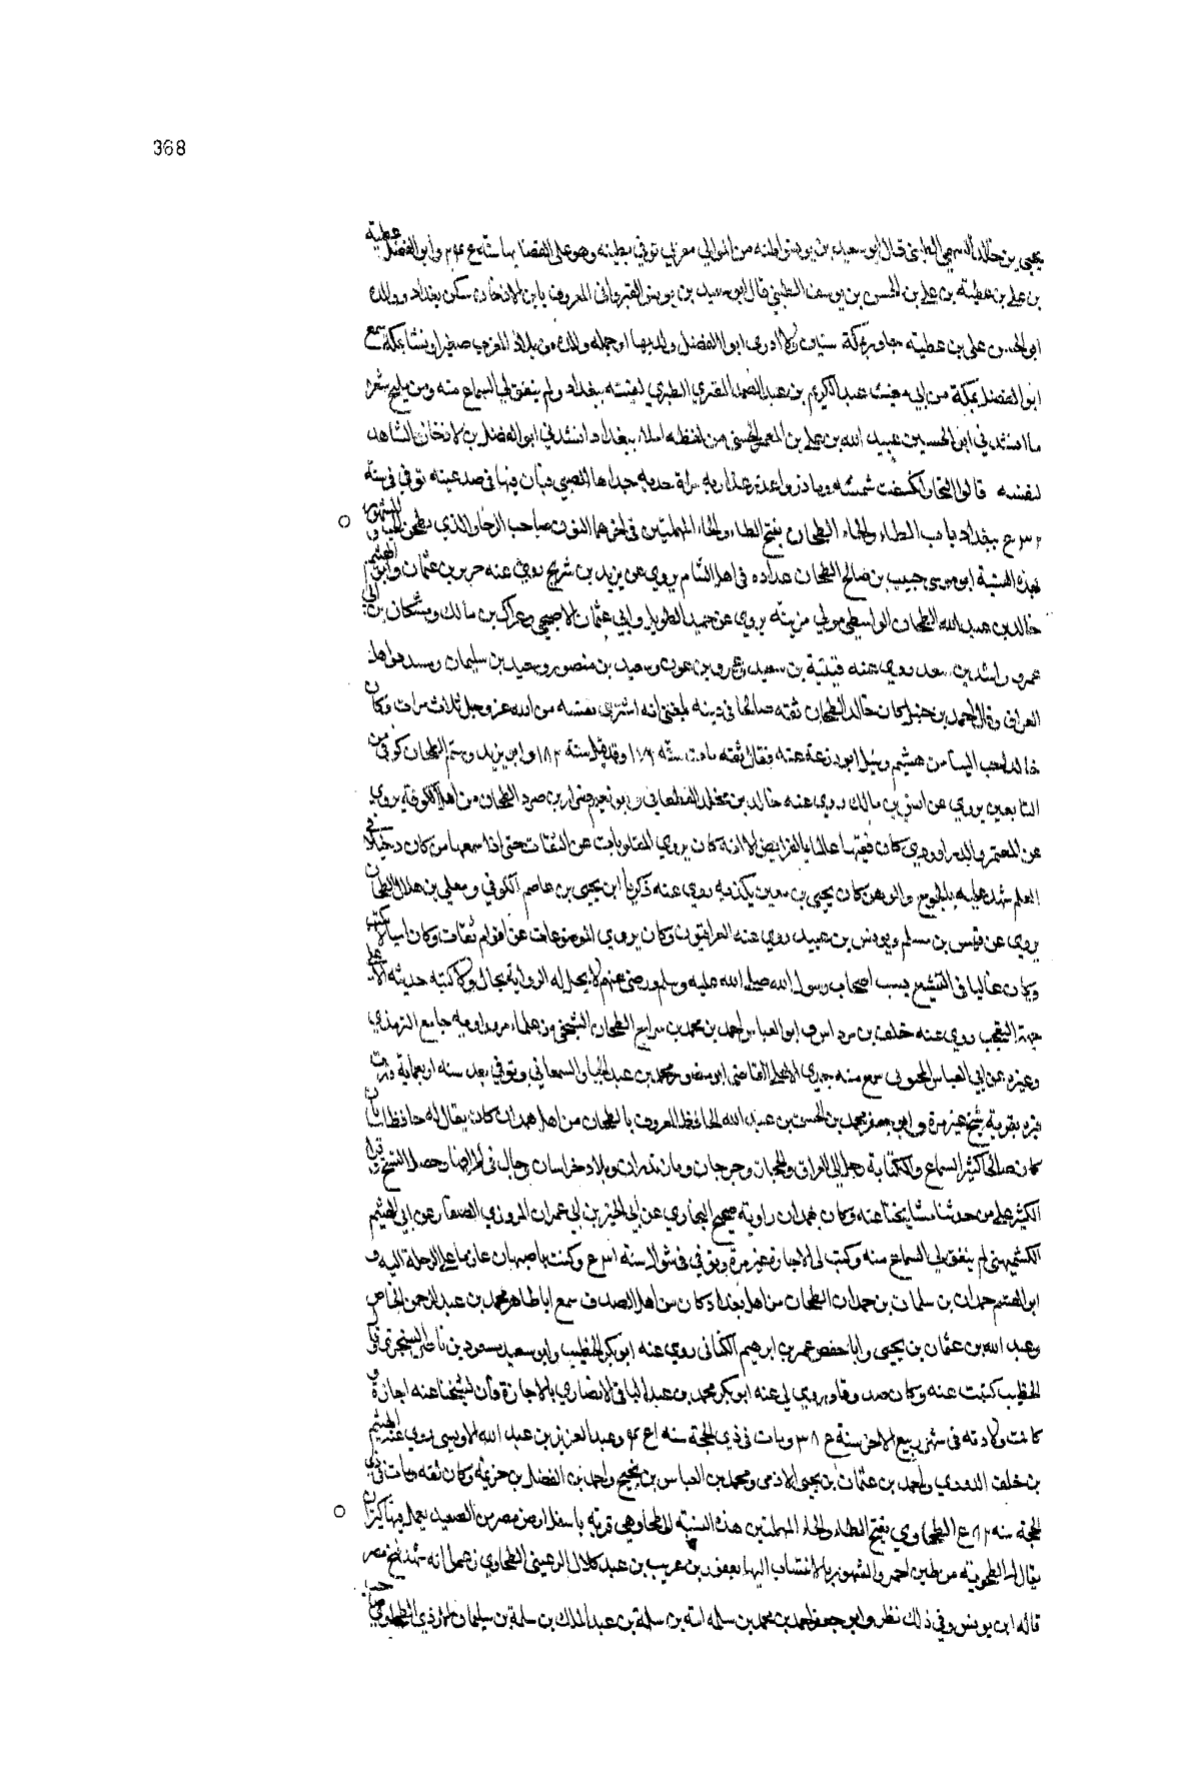 368
يحيى بن خالد السهمي الطبني قال ابو سعيد بن يونس اظنه من الموالي مغربي توفي بطبنه وهو على القضا بها وابو الفضل عطية
بن علي بن عطية بن علي بن الحسن بن يوسف الطبني القيرواني المعروف بابن لاذخان سكن بغداد ووالده
ابو الحسن علي بن عطيه جاور بمكة سنين ولا ادري ابو الفضل ولد بها او حمله والده من بلاد المغرب صغيرا ونشا بمكة سمع
ابو الفضل بمكة من ابي معشر عبد الكريم بن عبد الصمد المقري الطبري لقيته ببغداد ولم يتفق لي السماع منه ومن مليح شعره
ما انشدني ابو الحسين عبيد الله بن علي بن المعمر الحسني من لفظه املاء ببغداد انشدني ابو الفضل بن لاذخان الشاهد
لنفسه قالوا التحى وانكسفت شمسه وما دروا عذر عذاريه مراة خديه جلاها الصبى فبان فيها في صدغيه توفي في سنة
ببغداد باب الطاء والحاء الطحان بفتح الطاء والحاء المهملتين في اخرهما النون صاحب الرحا والذي يطحن الحب والمشهور
بهذه النسبة ابو موسى حبيب بن صالح الطحان عداده في اهل الشام يروي عن يزيد بن شريح روى عنه حريز بن عثمان وابو الهيثم
خالد بن عبد الله الطحان الواسطي مولى مزينه يروي عن حميد الطويل وابي عثمان الاصبحي وعراك بن مالك ومشكان بن ابي
عمرو راشد بن سعد روى عنه قتيبة بن سعيد وعمرو بن عون وسعيد بن منصور وسعيد بن سليمان ومسدد واهل
العراق وقال احمد بن حنبل كان خالد الطحان ثقه صالحا في دينه بلغني انه اشترى نفسه من الله عز وجل ثلاث مرات وكان
خالد احب الينا من هشيم وسئل ابو زرعة عنه فقال ثقه مات سنة ١٧٩ وقد قيل سنة ١٨٢ وابو يزيد رستم الطحان كوفي من
التابعين يروي عن انس بن مالك روى عنه خالد بن مخلد القطواني وابو نعيم ضرار بن صرد الطحان من اهل الكوفة يروي
عن المعتمر والدراوردي كان فقيها عالما بالفرايض الا انه كان يروي المقلوبات عن الثقات حتى اذا سمعها من كان دخيلا في
العلم شهد عليه بالجرح والوهن كان يحيى بن معين يكذبه روى عنه ابن يحيى بن عاصم الكوفي ومعلى بن هلال الطحان
يروي عن قيس بن مسلم ويونس بن عبيد روى عنه العراقيون وكان يروي الموضوعات عن اقوام ثقات وكان اميا لا يكتب
وكان غاليا في التشيع يسب اصحاب رسول الله صلى الله عليه وسلم ورضي عنهم لا يحل له الرواية بحال ولا كتبة حديثه الا على
جهة التعجب روى عنه خلف بن ابو العباس احمد بن محمد بن سراج الطحان السنجي من علماء مرو راويه جامع الترمذي
وغيره عن ابي العباس المحبوبي سمع منه جدي الاعلى القاضي ابو منصور محمد بن عبد الجبار السمعاني وتوفي بعد سنه اربعماية وزرت
قبره بقرية سنج غير مرة وابو جعفر محمد بن الحسن بن عبد الله الحافظ المعروف بالطحان من اهل همدان كان يقال له حافظان
كان صالحا كثير السماع والكتابة رحل الى العراق والحجاز وجرجان ومازندران وبلاد خراسان وجال في اطرافها وحصل النسخ
الكثير على من حدثنا مشايخنا عنه وكان بهمدان راوية صحيح البخاري عن ابي الخير بن ابي عمران المروزي الصفار عن ابي الهيثم
الكشميهني لم يتفق لي السماع منه وكتب لي الاجازة غير مرة وتوفي في شوال سنة وكنت باصبهان عازما على الرحلة اليه و
ابو القسم حمدان بن سلمان بن حمدان الطحان من اهل بغداد كان من اهل الصدق سمع ابا طاهر محمد بن عبد الرحمن المخلص
وعبد الله بن عثمان بن يحيى وابا حفص عمر بن ابرهيم الكتاني روى عنه ابو بكر الخطيب وابو سعيد مسعود بن ناصر السجزي قال
الخطيب كتبت عنه وكان صدوقا وروى لي عنه ابو بكر محمد بن عبد الباقي الانصاري بالاجازة وكان لشيخنا عنه اجازة و
كانت ولادته في شهر ربيع الاخر سنة ومات في ذي الحجة سنه وعبد العزيز بن عبد الله الاويسي روى عنه الهيثم
بن خلف الدوري واحمد بن عثمان بن يحيى الادمي ومحمد بن العباس بن نجيح واحمد بن الفضل بن خزيمة وكان ثقه ومات في ذي
الحجة سنه الطحاوي بفتح الطاء والحاء المهملتين هذه النسبة الى طحا وهي قرية باسفل ارض مصر من الصعيد يعمل فيها كيزان
يقال لها الطحوية من طين احمر والمشهور بالانتساب اليها يعفور بن عريب بن عبد كلال الرعيني الطحاوي زعموا انه شهد فتح مصر
قاله ابن يونس وفي ذلك نظر وابو جعفر احمد بن محمد بن سلامة بن سلمة بن عبد الملك بن سلمة بن سليمان الازدي الطحاوي صاحب